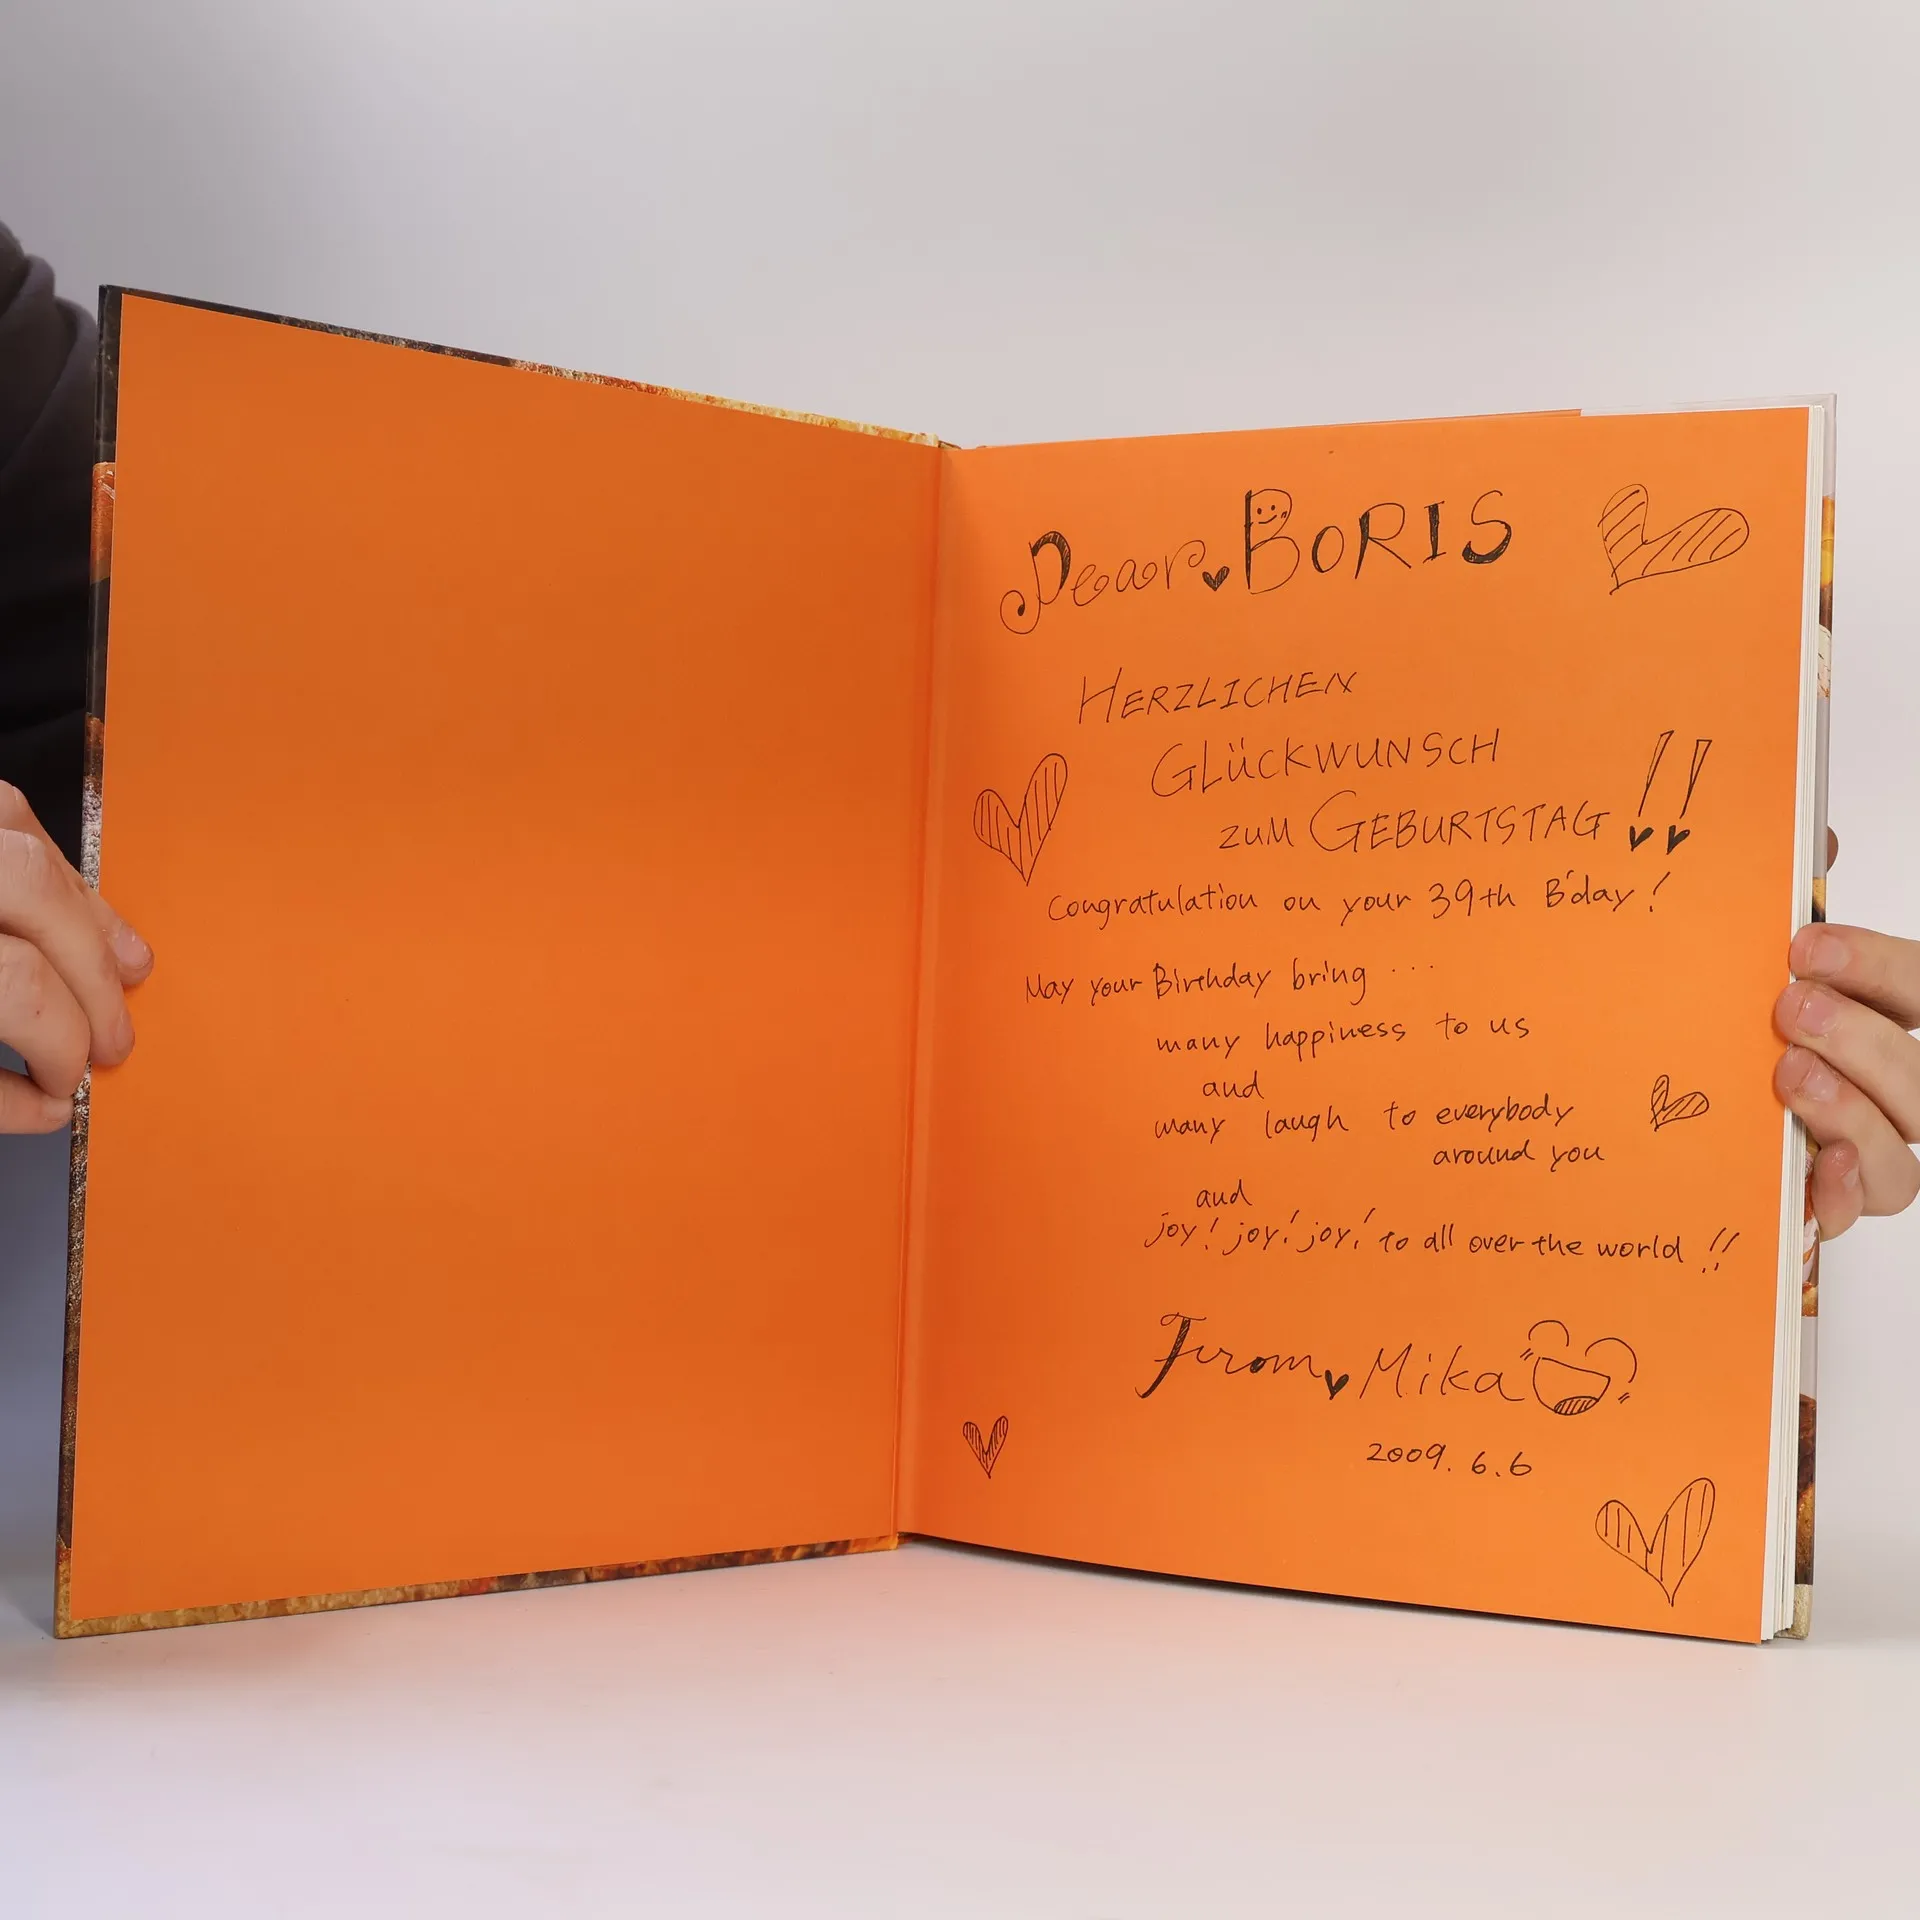 Dear BORIS
HERZLICHEN
GLÜCKWUNSCH
ZUM GEBURTSTAG !!
Congratulation on your 39th B'day !
May your Birthday bring ...
many happiness to us
and
many laugh to everybody
around you
and
joy! joy! joy! to all over the world !!
From Mika
2009. 6. 6